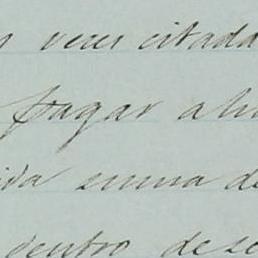 veces citada
pagar
suma de
dentro de